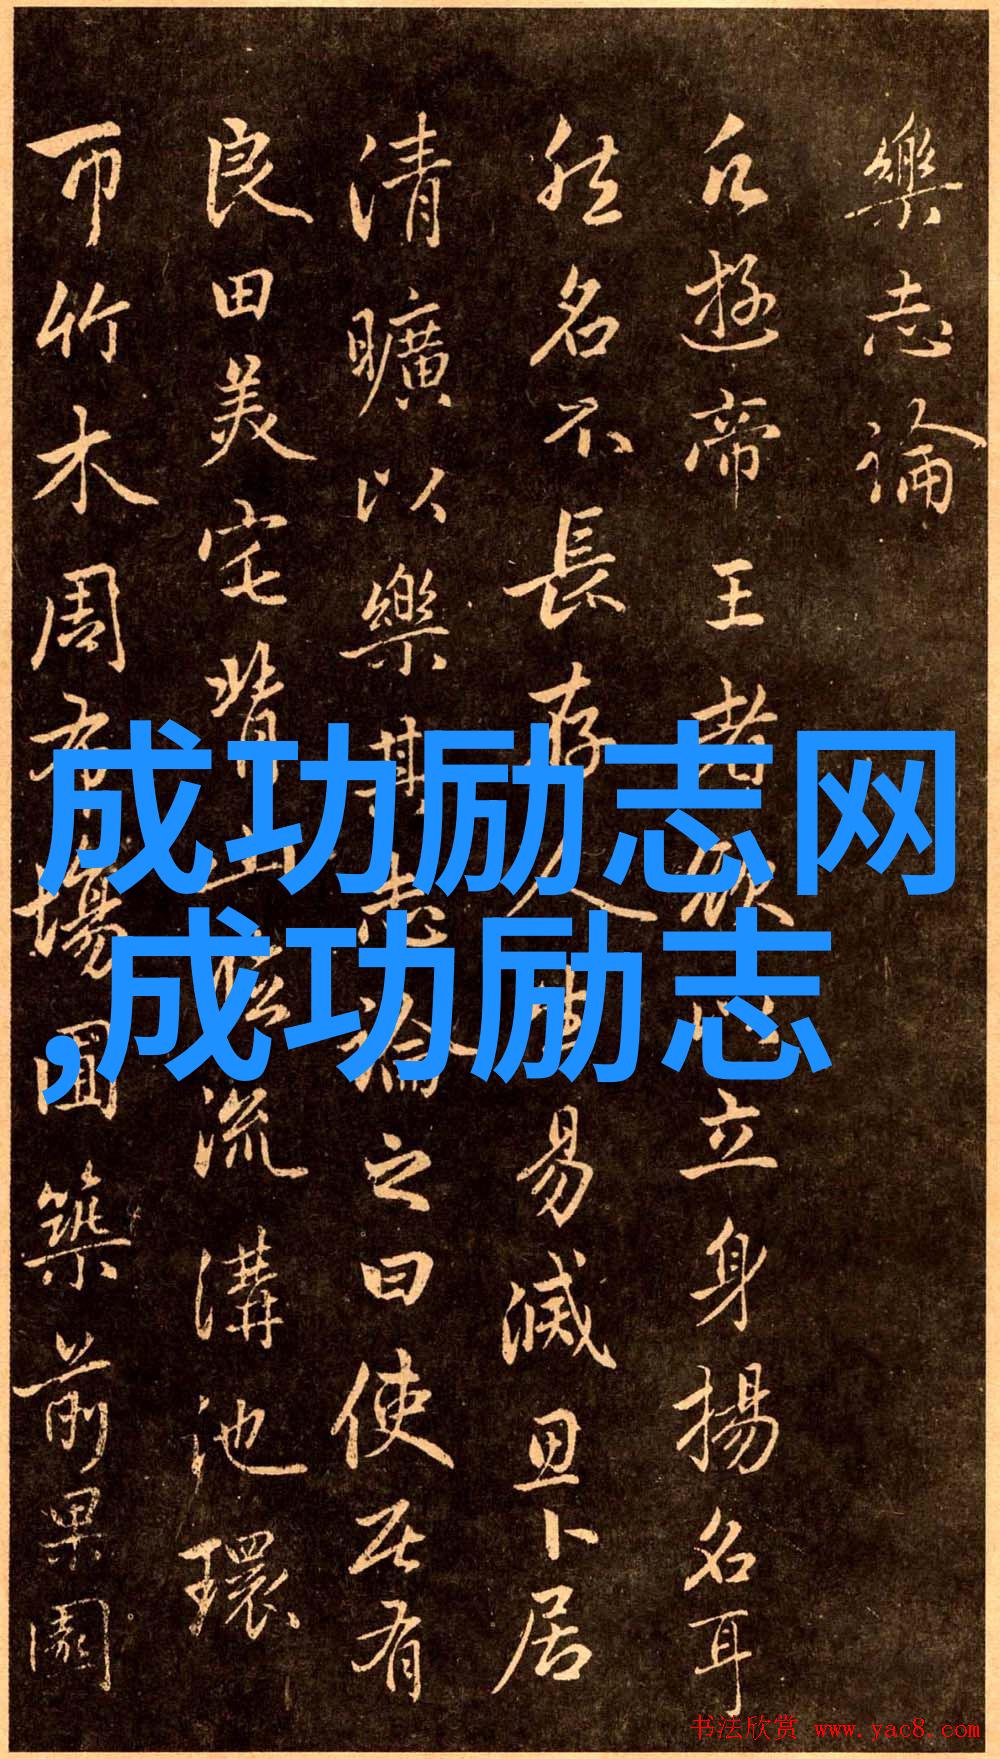 樂志論
凡遊帝王者欲以立身揚名耳
然名不長存人生易滅思卜居
清曠以樂其志論之曰使居有
良田美宅背山臨流溝池環
帀竹木周布場圃築前果園
成功励志网
,成功励志
书法欣赏 www.yac8.com